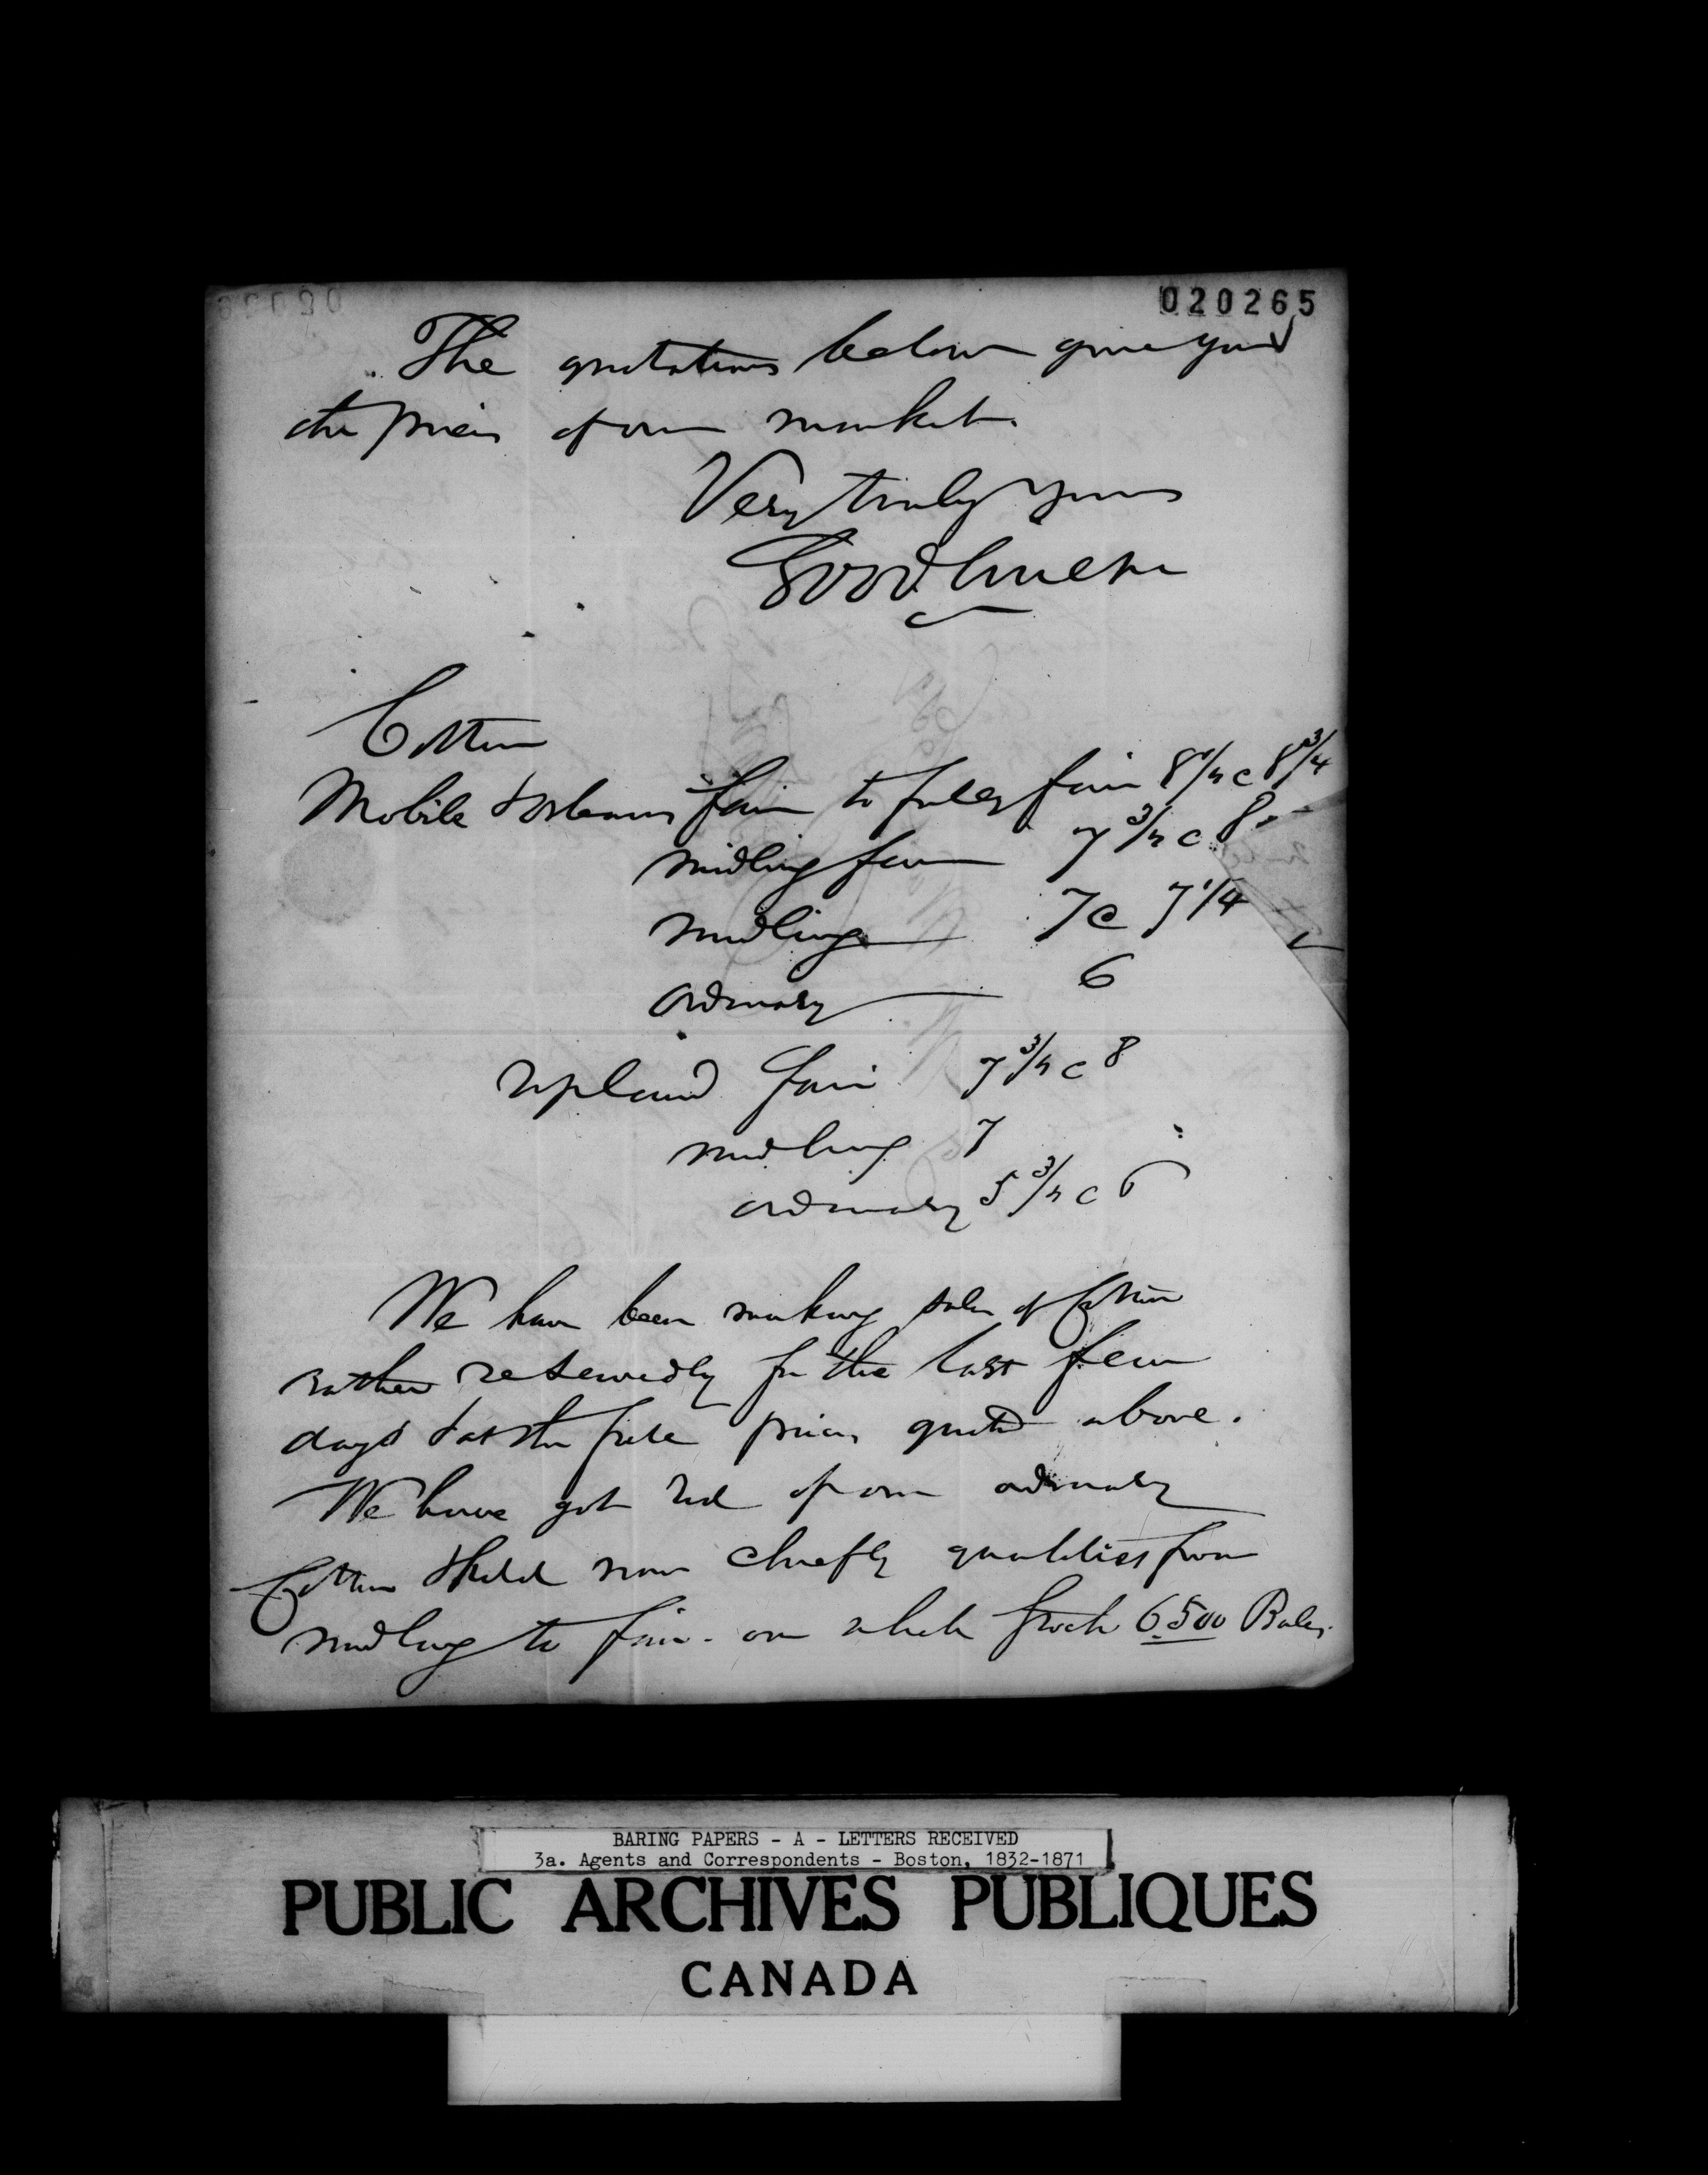 020265
The quotations below give you
the prices of our market.
Very truly yours
Cotton
Mobile & Orleans fair to fully fair 8 1/2 @ 8 3/4
midling fair 7 3/4 @ 8
midling 7 @ 7 1/4
ordinary 6
Upland fair 7 3/4 @ 8
midling 7
ordinary 5 3/4 @ 6
We have been making sales of Cotton
rather reservedly for the last few
days & at the full prices quoted above.
We have got rid of our ordinary
Cotton & hold now chiefly qualities from
midling to fair. our whole stock 6500 Bales.
BARING PAPERS - A - LETTERS RECEIVED
3a. Agents and Correspondents - Boston, 1832-1871
PUBLIC ARCHIVES PUBLIQUES
CANADA